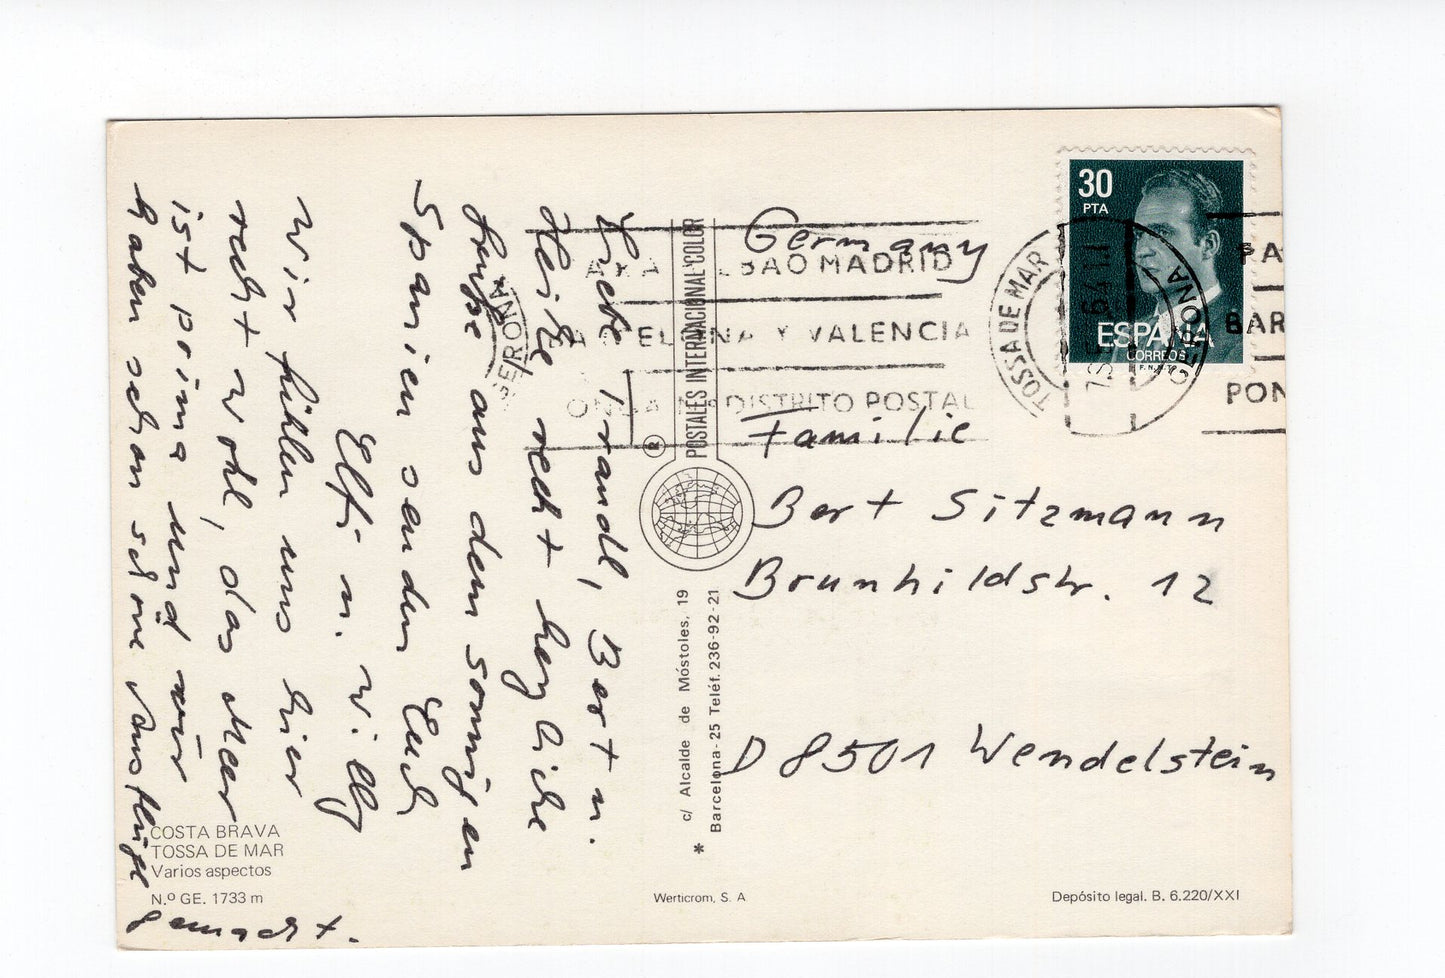 Liebe Traudl, Bert u.
Heike recht herzliche
Grüße aus dem sonnigen
Spanien senden Euch
Elfi u. Willy
Wir fühlen uns hier
recht wohl, das Meer
ist prima und wir
haben schon schöne Ausflüge
gemacht.
COSTA BRAVA
TOSSA DE MAR
Varios aspectos
N.º GE. 1733 m
POSTALES INTERNACIONAL'COLOR
®
c/ Alcalde de Móstoles, 19
Barcelona-25 Teléf. 236-92-21
*
Werticrom, S. A
Depósito legal. B. 6.220/XXI
30
PTA
ESPAÑA
CORREOS
F.N.M.T.
TOSSA DE MAR
GERONA
GERONA
BAO MADRID
Y VALENCIA
DISTRITO POSTAL
PA
BAR
PON
Germany
Familie
Bert Sitzmann
Brunhildstr. 12
D 8501 Wendelstein